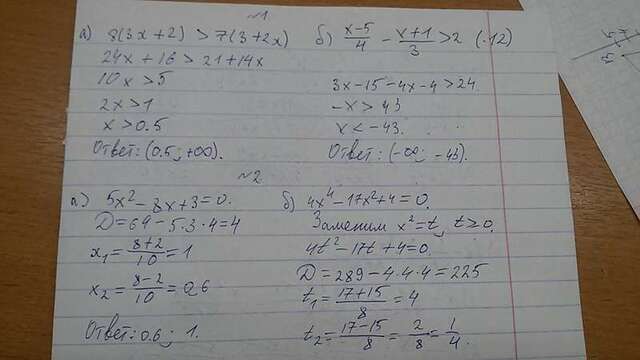 №1
а) 8(3x+2) > 7(3+2x)
24x+16 > 21+14x
10x > 5
2x > 1
x > 0.5
Ответ: (0.5; +∞).
б) x-5/4 - x+1/3 > 2 (·12)
3x-15-4x-4 > 24
-x > 43
x < -43.
Ответ: (-∞; -43).
№2
а) 5x²-8x+3=0.
D=64-5·3·4=4
x₁=8+2/10=1
x₂=8-2/10=0,6
Ответ: 0.6; 1.
б) 4x⁴-17x²+4=0.
Заменим x²=t, t≥0.
4t²-17t+4=0.
D=289-4·4·4=225
t₁=17+15/8=4
t₂=17-15/8=2/8=1/4.